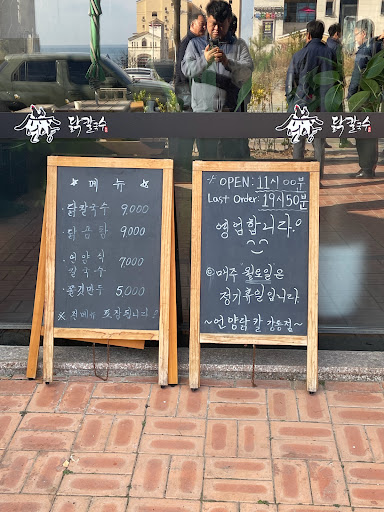 닭칼국수
닭칼국수
메뉴
닭칼국수 9,000
닭곰탕 9,000
언양식
칼국수 7,000
쫄깃만두 5,000
※ 전메뉴 포장됩니다!
※ OPEN: 11시 00분
Last Order: 19시 50분
영업합니다.
◎ 매주 월요일은
정기휴일입니다.
~언양닭칼 강동점~